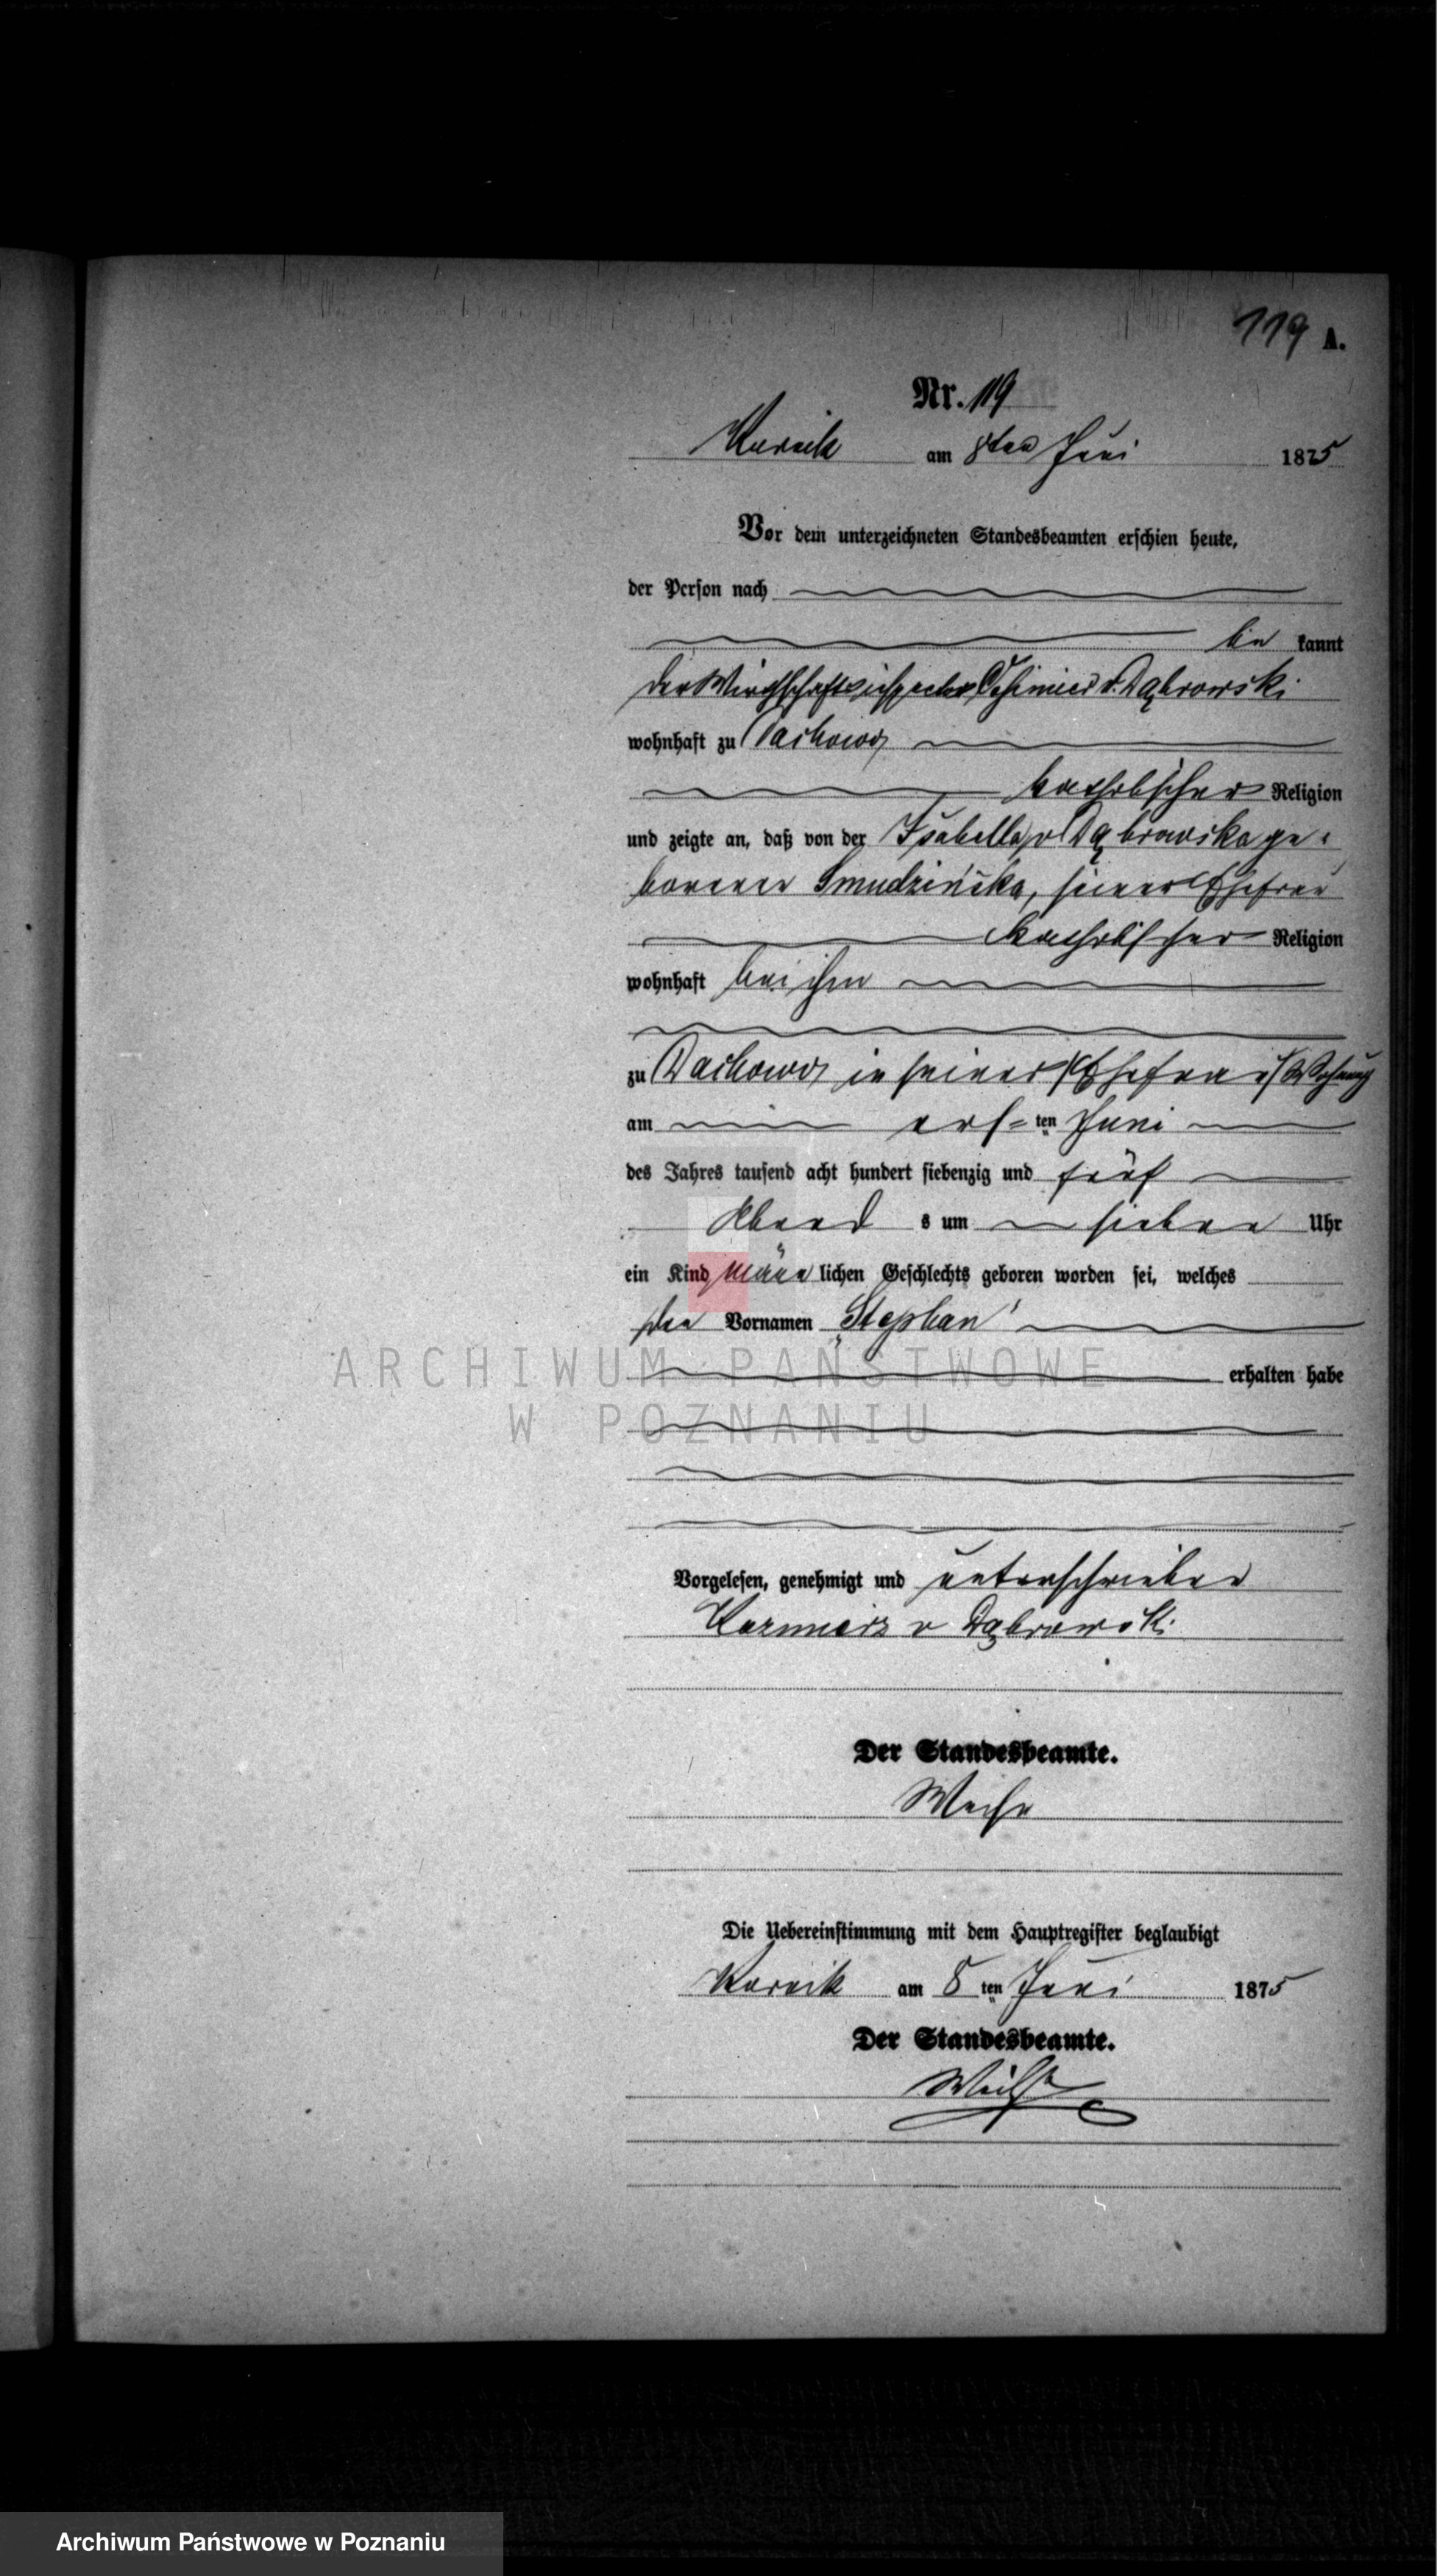 119 A.
Nr. 119
Kurnik am 8ten Juni 1875
Vor dem unterzeichneten Standesbeamten erschien heute,
der Person nach
be kannt
der Wirthschaftsinspector Casimier v. Dąbrowski
wohnhaft zu Dachowo
katholischer Religion
und zeigte an, daß von der Isabella v Dąbrowska ge-
borenen Smudzińska, seiner Ehefrau
katholischer Religion
wohnhaft bei ihm
zu Dachowo in seiner Ehefrau Wohnung
am ersten Juni
des Jahres tausend acht hundert siebenzig und fünf
Abend s um sieben Uhr
ein Kind männlichen Geschlechts geboren worden sei, welches
den Vornamen „Stephan"
erhalten habe
ARCHIWUM PAŃSTWOWE
W POZNANIU
Vorgelesen, genehmigt und unterschrieben
Kazmierz v Dąbrowski
Der Standesbeamte.
Weise
Die Uebereinstimmung mit dem Hauptregister beglaubigt
Kurnik am 8ten Juni 1875
Der Standesbeamte.
Weise
Archiwum Państwowe w Poznaniu